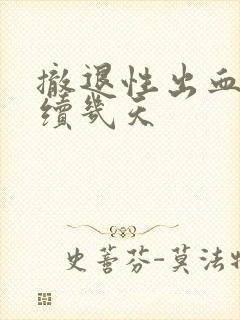 撤退性出血
續幾天
史蒈芬-莫法